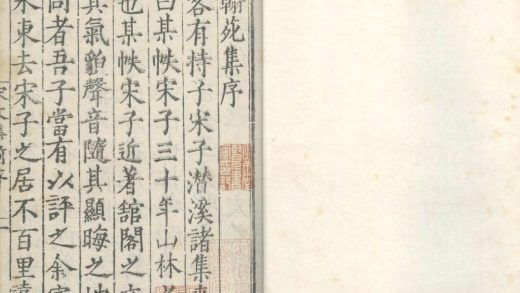 翰苑集序
客有持子宋子潛溪諸集來
曰某帙宋子三十年山林
也某帙宋子近著舘閣之
其氣貌聲音隨其顯晦之地
同者吾子當有以評之余
宋東去宋子之居不百里